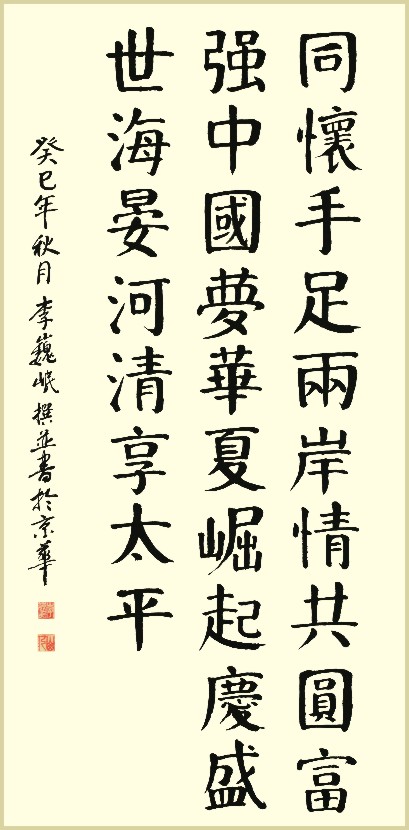 同懷手足兩岸情共圓富
强中國夢華夏崛起慶盛
世海晏河清享太平
癸巳年秋月李巍岷撰並書於京華